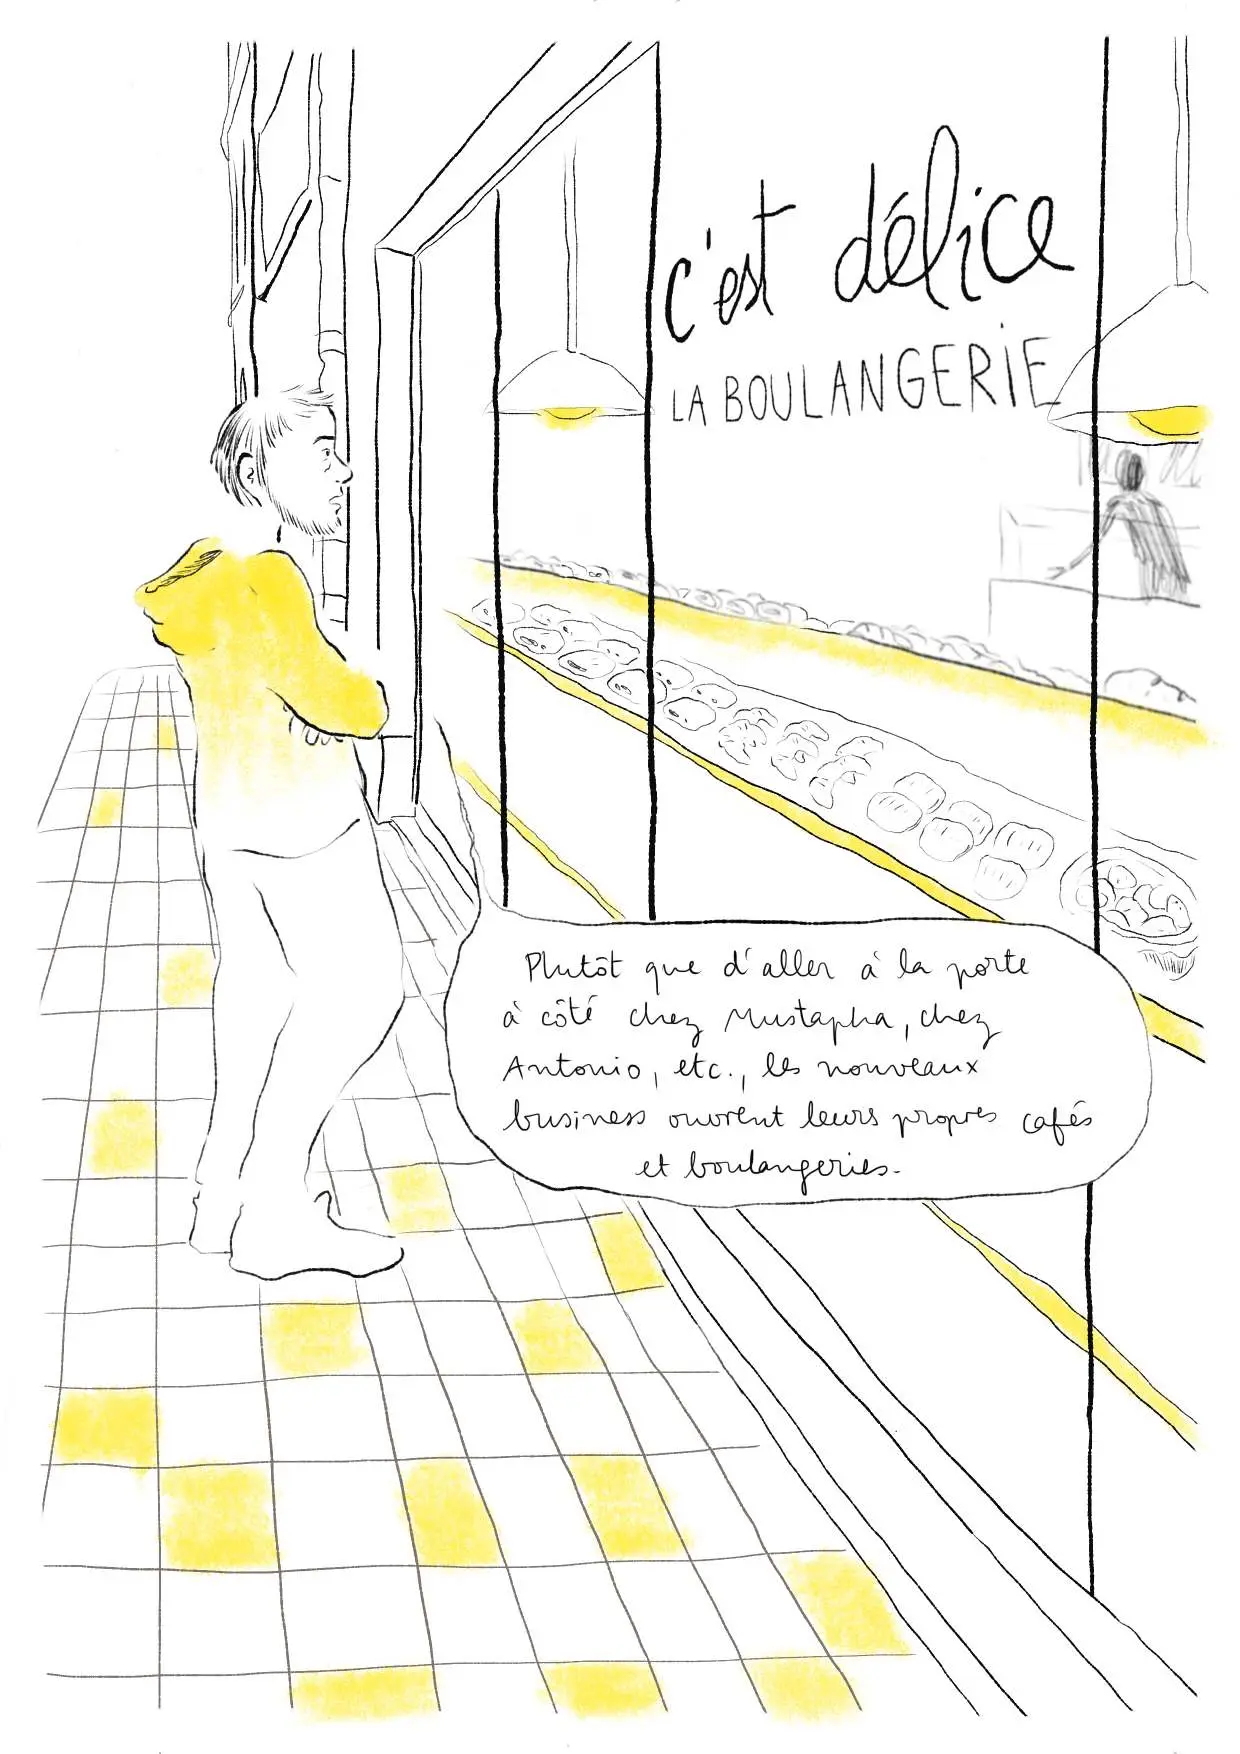 c'est délice
LA BOULANGERIE
Plutôt que d'aller à la porte
à côté chez Mustapha, chez
Antonio, etc., les nouveaux
business ouvrent leurs propres cafés
et boulangeries.